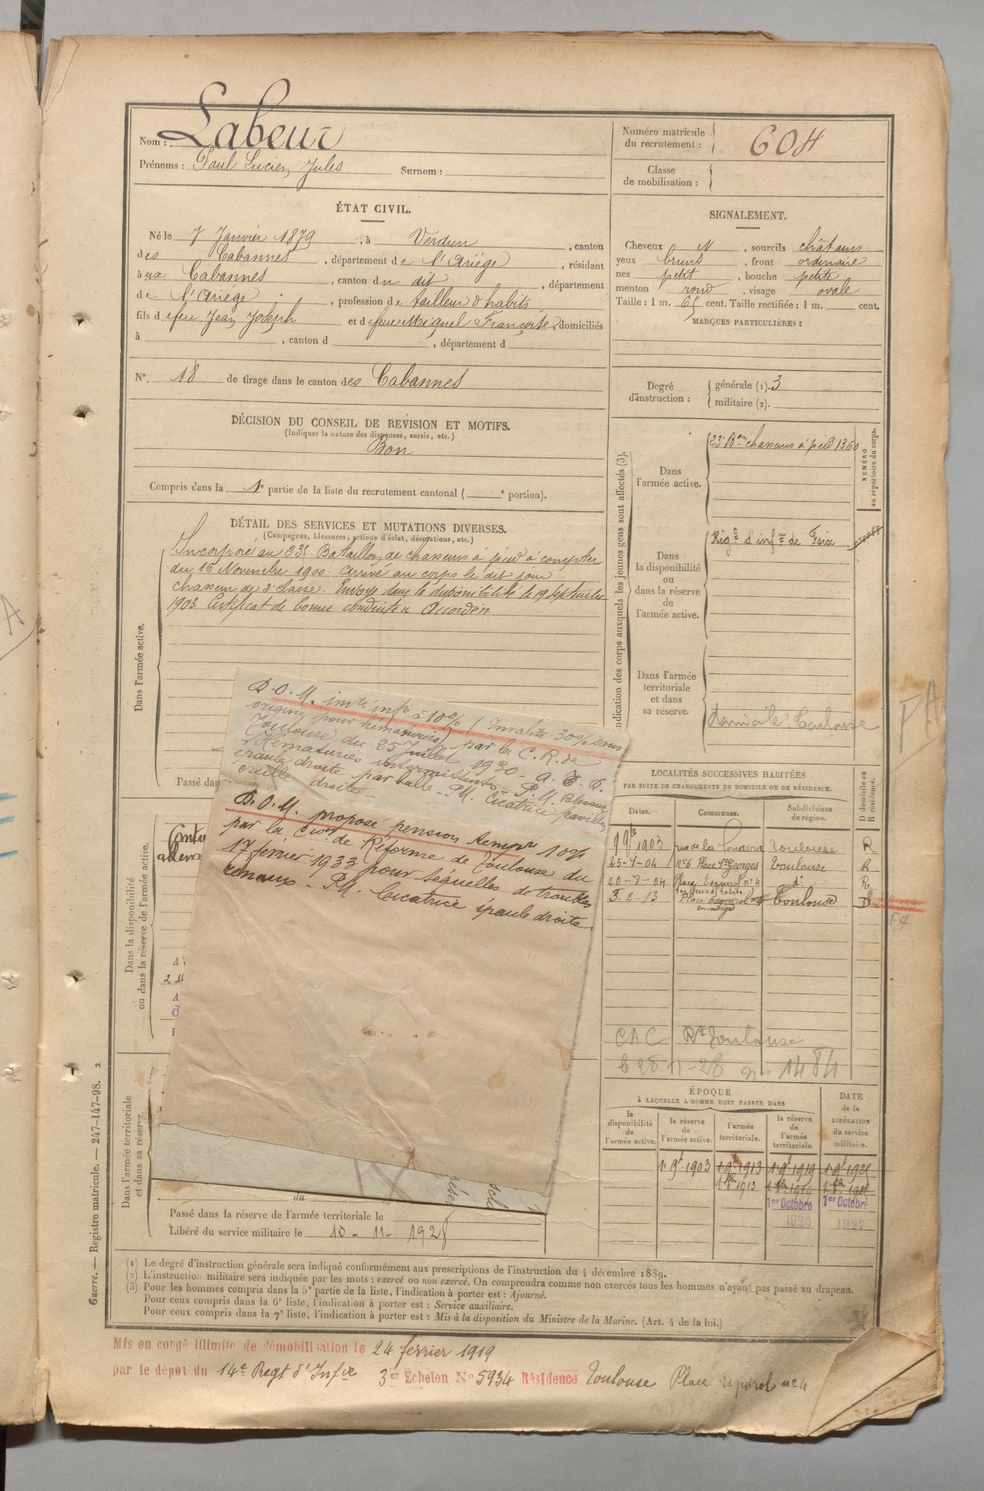 Nom : Labeur
Prénoms : Paul Lucien Jules Surnom :
Numéro matricule du recrutement : 604
Classe de mobilisation :
ÉTAT CIVIL.
Né le 7 Janvier 1879, à Verdun, canton
des Cabannes, département de l'Ariège, résidant
à aux Cabannes, canton du dit, département
de l'Ariège, profession de tailleur d'habits
fils de feu Jean Joseph et de feue Miquel Françoise, domiciliés
à , canton d , département d
SIGNALEMENT.
Cheveux N, sourcils châtains
yeux bruns, front ordinaire
nez petit, bouche petite
menton rond, visage ovale
Taille : 1 m. 65 cent. Taille rectifiée : 1 m. cent.
MARQUES PARTICULIÈRES :
N° 18 de tirage dans le canton des Cabannes
Degré d'instruction : générale (1). 3
militaire (2).
DÉCISION DU CONSEIL DE REVISION ET MOTIFS.
(Indiquer la nature des dispenses, sursis, etc.)
Bon
Compris dans la 1e partie de la liste du recrutement cantonal ( e portion).
DÉTAIL DES SERVICES ET MUTATIONS DIVERSES.
(Campagnes, blessures, actions d'éclat, décorations, etc.)
Incorporé au 23e Bataillon de chasseurs à pied à compter
du 16 Novembre 1900. Arrivé au corps le dit jour
chasseur de 2e classe. Envoyé dans la disponibilité le 19 septembre
1903. Certificat de bonne conduite Accordé
Dans l'armée active.
Passé dan
Dans la disponibilité
ou dans la réserve de l'armée active.
Dans l'armée territoriale
et dans sa réserve.
D.O.M. invte inf. à 10% (Invalité 30% sans
origine pour hématuries) par la C.R. de
Toulouse du 25 Juillet 1930 -
Hématuries intermittents - P.M. Blessure
épaule droite par balle - P.M. Cicatrice pavillon
oreille droite -
D.O.M. proposé pension tempre 10%
par la Cion de Réforme de Toulouse du
17 février 1933 pour séquelles de troubles
rénaux - P.M. Cicatrice épaule droite
du
Passé dans la réserve de l'armée territoriale le
Libéré du service militaire le 10-11-192
Indication des corps auxquels les jeunes gens sont affectés (3).
NUMÉRO au répertoire du corps.
Dans l'armée active.
23e Bon chasseurs à pied 1360
Dans la disponibilité ou dans la réserve de l'armée active.
Régt d'infrie de Foix
Dans l'armée territoriale et dans sa réserve.
domicile Toulouse
LOCALITÉS SUCCESSIVES HABITÉES
PAR SUITE DE CHANGEMENTS DE DOMICILE OU DE RÉSIDENCE.
Dates. Communes. Subdivisions de région. D domicile ou R résidence.
1903 Toulouse R
25-4-04 n° 6 Place St Georges Toulouse R
20-7-04 Place Esquirol n° 4 d° R
3-2-13 Place Esquirol Toulouse D
CAC Rt Toulouse
le 28-11-28 n° 1484
ÉPOQUE
À LAQUELLE L'HOMME DOIT PASSER DANS
la disponibilité de l'armée active.
la réserve de l'armée active.
l'armée territoriale.
la réserve de l'armée territoriale.
DATE de la LIBÉRATION du service militaire.
1 9t 1903 1 9t 1913 1 9t 1919 1 9t 1925
1er Octobre 1920 1er Octobre 1927
(1) Le degré d'instruction générale sera indiqué conformément aux prescriptions de l'instruction du 4 décembre 1889.
(2) L'instruction militaire sera indiquée par les mots : exercé ou non exercé. On comprendra comme non exercés tous les hommes n'ayant pas passé au drapeau.
(3) Pour les hommes compris dans la 5e partie de la liste, l'indication à porter est : Ajourné.
Pour ceux compris dans la 6e liste, l'indication à porter est : Service auxiliaire.
Pour ceux compris dans la 7e liste, l'indication à porter est : Mis à la disposition du Ministre de la Marine. (Art. 4 de la loi.)
Guerre. — Registre matricule. — 247-147-98. 2
Mis en congé illimité de démobilisation le 24 février 1919
par le dépôt du 14e Regt d'Infie 3er Echelon N° 5934 Résidence Toulouse Place Esquirol n° 4